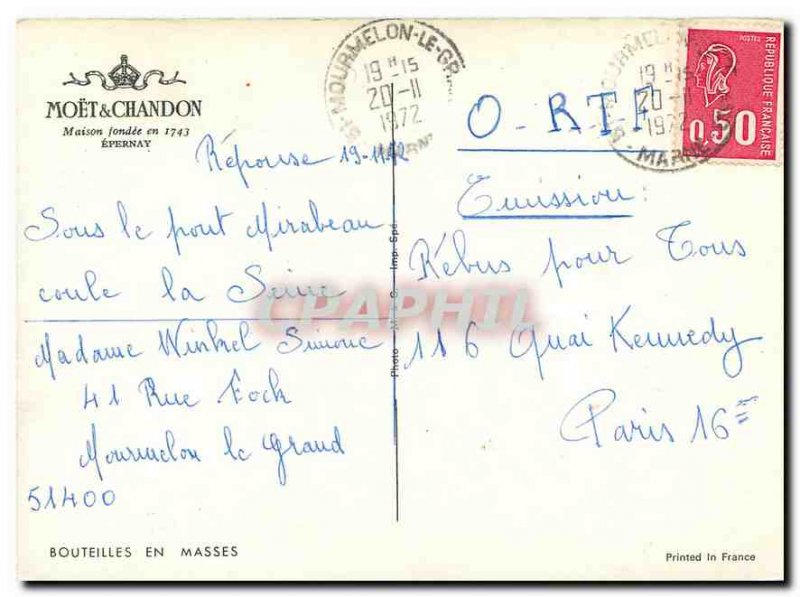 MOËT & CHANDON
Maison fondée en 1743
ÉPERNAY
Réponse 19-11-72
Sous le pont Mirabeau
coule la Seine
Madame Winkel Simone
41 Rue Foch
Mourmelon le grand
51400
BOUTEILLES EN MASSES
Photo M. & C. Imp. Spé.
51-MOURMELON-LE-GR
19H15
20-11
1972
MARNE
19H15
20-11
1972
MARNE
POSTES
RÉPUBLIQUE FRANÇAISE
0,50
O-RTF
Emission:
Rébus pour Tous
116 Quai Kennedy
Paris 16e
Printed In France
CPAPHIL